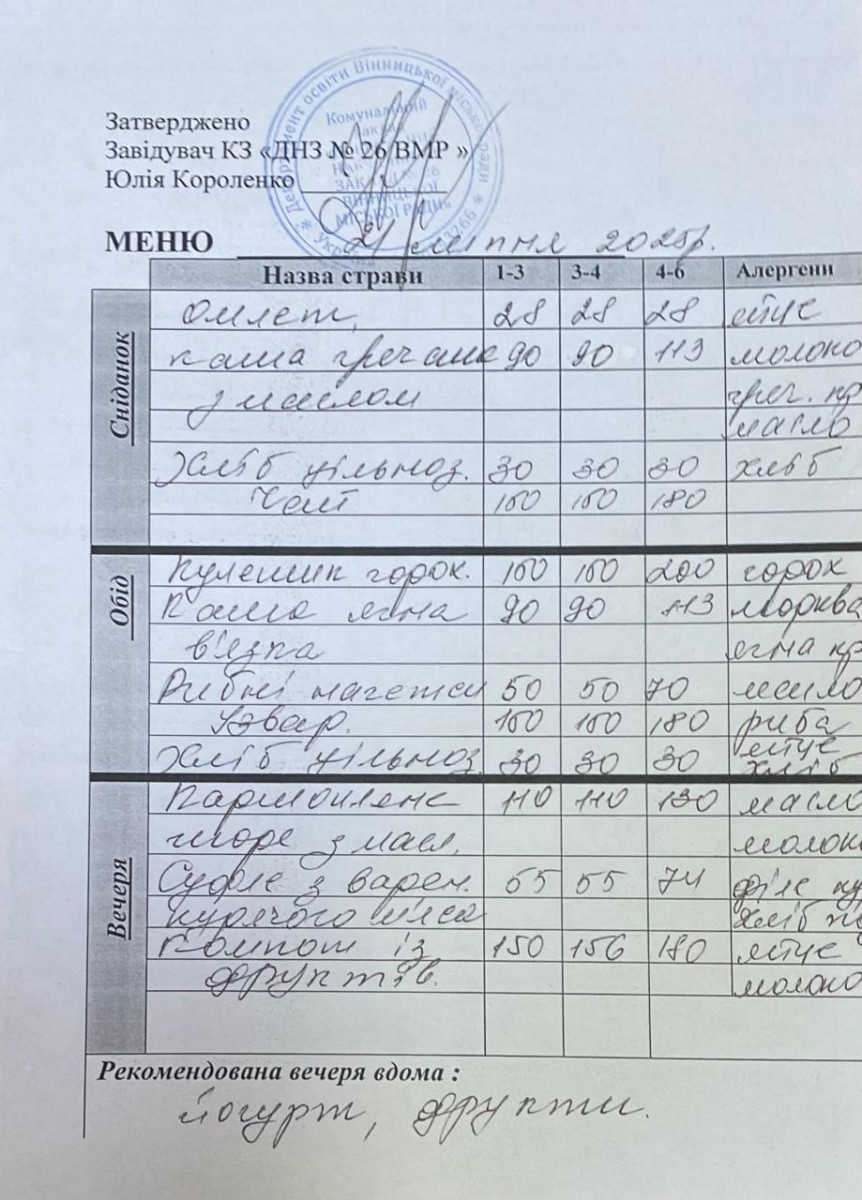 Департамент освіти Вінницької міської ради
Комунальний
Затверджено
Завідувач КЗ «ДНЗ № 26 ВМР »
Юлія Короленко
МІСЬКОЇ РАДИ»
МЕНЮ 21 липня 2025р.
Назва страви 1-3 3-4 4-6 Алергени
Сніданок
Омлет, 28 28 28 яйце
каша гречане 90 90 113 молоко
з маслом греч. кр
масло
Хліб цільноз. 30 30 30 хліб
Чай 150 150 180
Обід
Кулешик горох. 150 150 200 горох
Каша ячна 90 90 113 морква
в'язка ячна кр
Рибні нагетси 50 50 70 масло
Узвар. 150 150 180 риба
яйце
Хліб цільноз. 30 30 30 хліб
Вечеря
Картоплене 110 110 130 масло
пюре з масл. молоко
Суфле з варен. 55 55 74 філе ку
курячого м'яса хліб
Компот із 150 150 180 яйце
фруктів. молоко
Рекомендована вечеря вдома :
йогурт, фрукти.